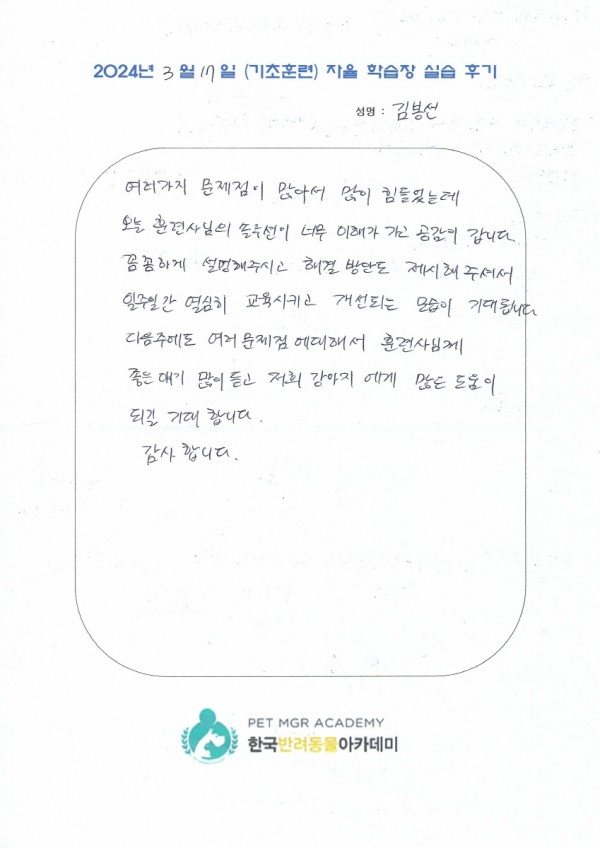 2024년 3월 17일 (기초훈련) 자율 학습장 실습 후기
성명 : 김봉선
여러가지 문제점이 많아서 많이 힘들었는데
오늘 훈련사님의 솔루션이 너무 이해가 가고 공감이 갑니다.
꼼꼼하게 설명해주시고 해결 방안도 제시해 주셔서
일주일간 열심히 교육시키고 개선되는 모습이 기대됩니다
다음주에도 여러 문제점에대해서 훈련사님께
좋은 얘기 많이 듣고 저희 강아지 에게 많은 도움이
되길 기대 합니다.
감사 합니다.
PET MGR ACADEMY
한국반려동물아카데미